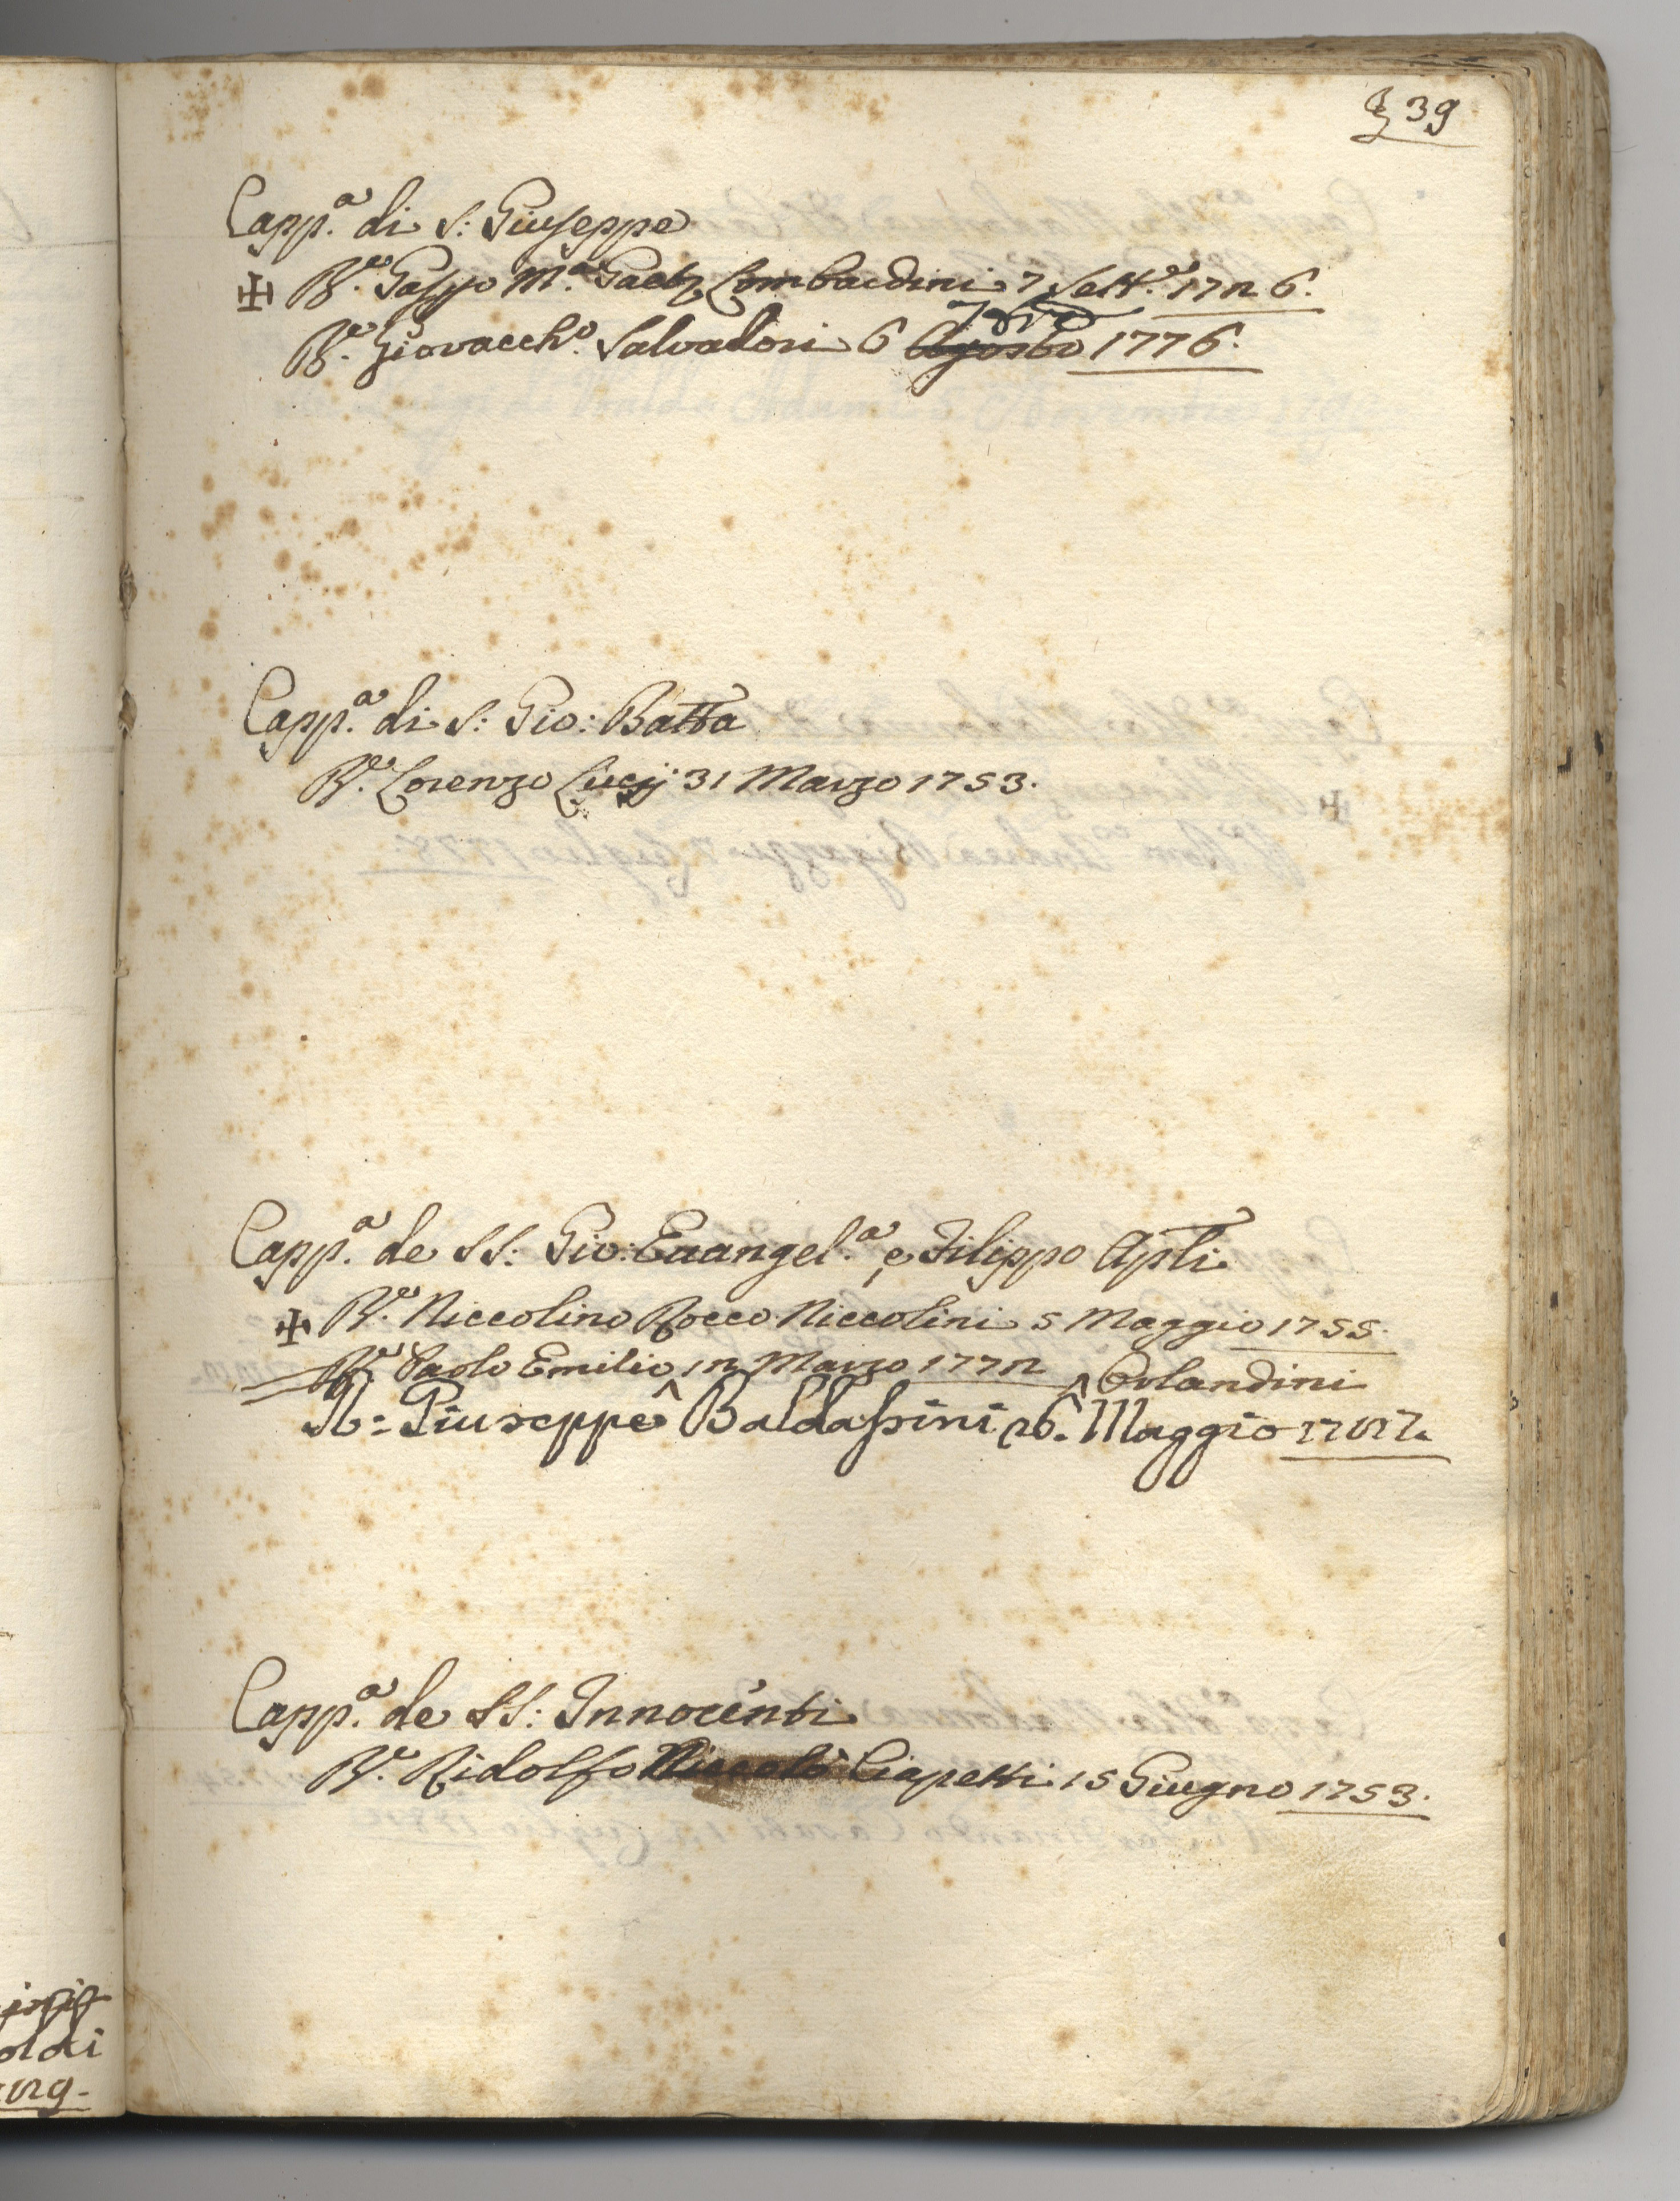 39
Capp.ª di S: Giuseppe
✠ R.ᵈᵒ Gasp.º M.ª Gaet.º Lombardini 7 Sett.ᵉ 1726.
7bre
R.ᵈᵒ Giovacch.º Salvadori 6 Agosto 1776.
Capp.ª di S: Gio: Batta
R.ᵈᵒ Lorenzo Lucij 31 Marzo 1753.
Capp.ª de SS: Gio: Euangel.ª e Filippo Apli
✠ R.ᵈᵒ Niccolino Rocco Niccolini 5 Maggio 1755.
R.ᵈᵒ Paolo Emilio ^ 12 Marzo 1772 ^ Orlandini
R: Giuseppe Baldassini 26. Maggio
Capp.ª de SS: Innocenti
R.ᵈᵒ Ridolfo Niccolò Ciapetti 15 Giugno 1753.
oldi